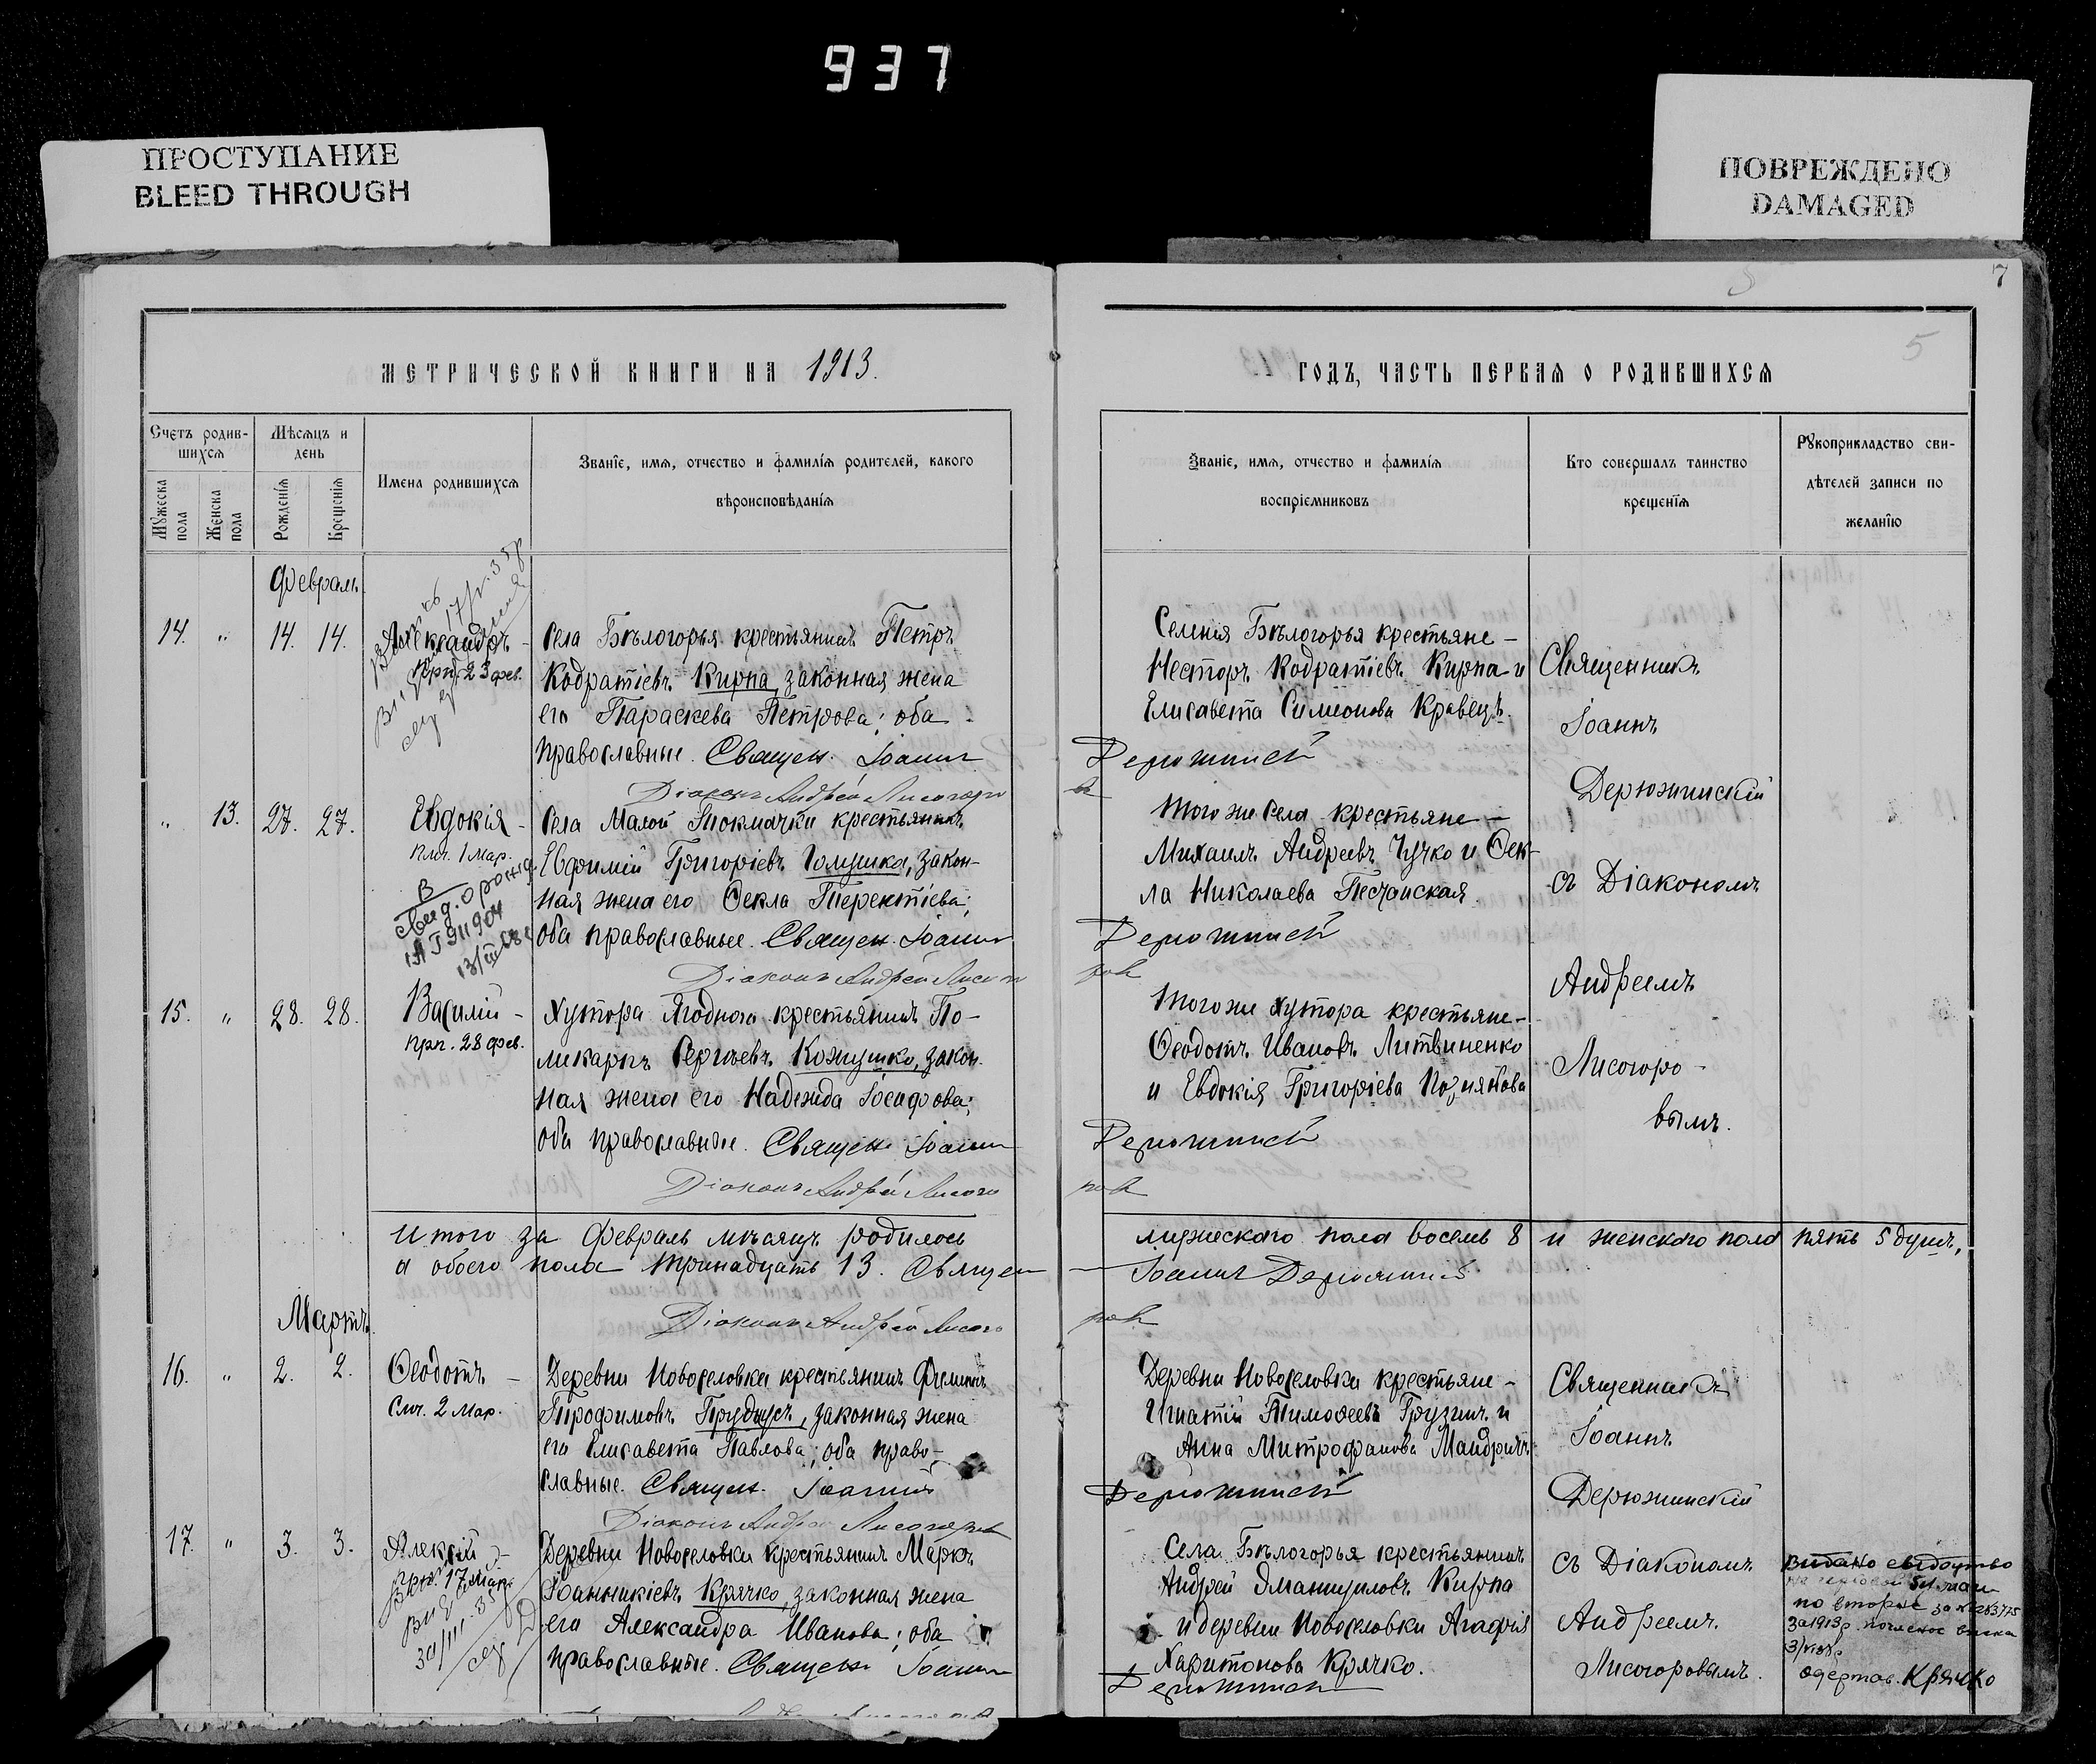 937
ПРОСТУПАНИЕ
BLEED THROUGH
ПОВРЕЖДЕНО
DAMAGED
7
5
МЕТРИЧЕСКОЙ КНИГИ НА 1913.
Счетъ родив-
шихся
Мѣсяцъ и
день
Мужеска
пола
Женска
пола
Рожденія
Крещенія
Имена родившихся
Званіе, имя, отчество и фамилія родителей, какого
вѣроисповѣданія
Февраль
14. " 14. 14.
Александръ -
прп. 23 фев.
Села Бѣлогорья крестьянинъ Петръ
Кодратіевъ Кирпа, законная жена
его Параскева Петрова; оба
православные. Священ. Іоаннъ
Діаконъ Андрей Лисогоро
" 13. 27. 27.
Евдокія -
плч. 1 мар.
В
свид. о рожд.
Села Малой Токмачки крестьянинъ
Евфимій Григоріевъ Голушка, закон-
ная жена его Ѳекла Терентіева;
оба православные. Священ. Іоаннъ
Діаконъ Андрей Лисого
15. " 28. 28.
Василій -
прп. 28 фев.
Хутора Ягоднаго крестьянинъ По-
ликарпъ Сергіевъ Кожушко, закон-
ная жена его Надежда Іосифова;
оба православные. Священ. Іоаннъ
Діаконъ Андрей Лисого
Итого за Февраль мѣсяцъ родилось
а обоего пола тринадцать 13. Священ
Діаконъ Андрей Лисого
Мартъ
16. " 2. 2.
Ѳеодотъ -
Сщ. 2 мар.
Деревни Новоселовки крестьянинъ Филиппъ
Трофимовъ Прудиусъ, законная жена
его Елисавета Павлова; оба право-
славные. Священ. Іоаннъ
Діаконъ Андрей Лисогоров
17. " 3. 3.
Алексій -
17 мар.
Деревни Новоселовки крестьянинъ Маркъ
Іоанникіевъ Крячко, законная жена
его Александра Иванова; оба
православные. Священ. Іоаннъ
ГОДЪ, ЧАСТЬ ПЕРВАЯ О РОДИВШИХСЯ
Званіе, имя, отчество и фамилія
воспріемниковъ
Кто совершалъ таинство
крещенія
Рукоприкладство сви-
дѣтелей записи по
желанію
Селенія Бѣлогорья крестьяне -
Несторъ Кодратіевъ Кирпа и
Елисавета Симеонова Кравецъ.
Дерюжинскій
въ
Того же села крестьяне -
Михаилъ Андреевъ Чучко и Ѳек-
ла Николаева Песчанская.
Дерюжинскій
ровъ
Того же хутора крестьяне -
Ѳеодотъ Ивановъ Литвиненко
и Евдокія Григоріева Познякова
Дерюжинскій
ровъ
Священникъ
Іоаннъ
Дерюжинскій
съ Діакономъ
Андреемъ
Лисогоро-
вымъ.
мужескаго пола восемь 8 и женскаго пола пять 5 душъ,
Іоаннъ Дерюжинскій
ровъ
Деревни Новоселовки крестьяне -
Игнатій Тимоѳеевъ Грузинъ и
Анна Митрофанова Мандричъ.
Дерюжинскій
Села Бѣлогорья крестьянинъ
Андрей Эмануиловъ Кирпа
и деревни Новоселовки Агафія
Харитонова Крячко.
Дерюжинскій
Священникъ
Іоаннъ
Дерюжинскій
съ Діакономъ
Андреемъ
Лисогоровымъ.
видано свідоцтво
по вторые за №
за 1913 р.
одержав. Крячко